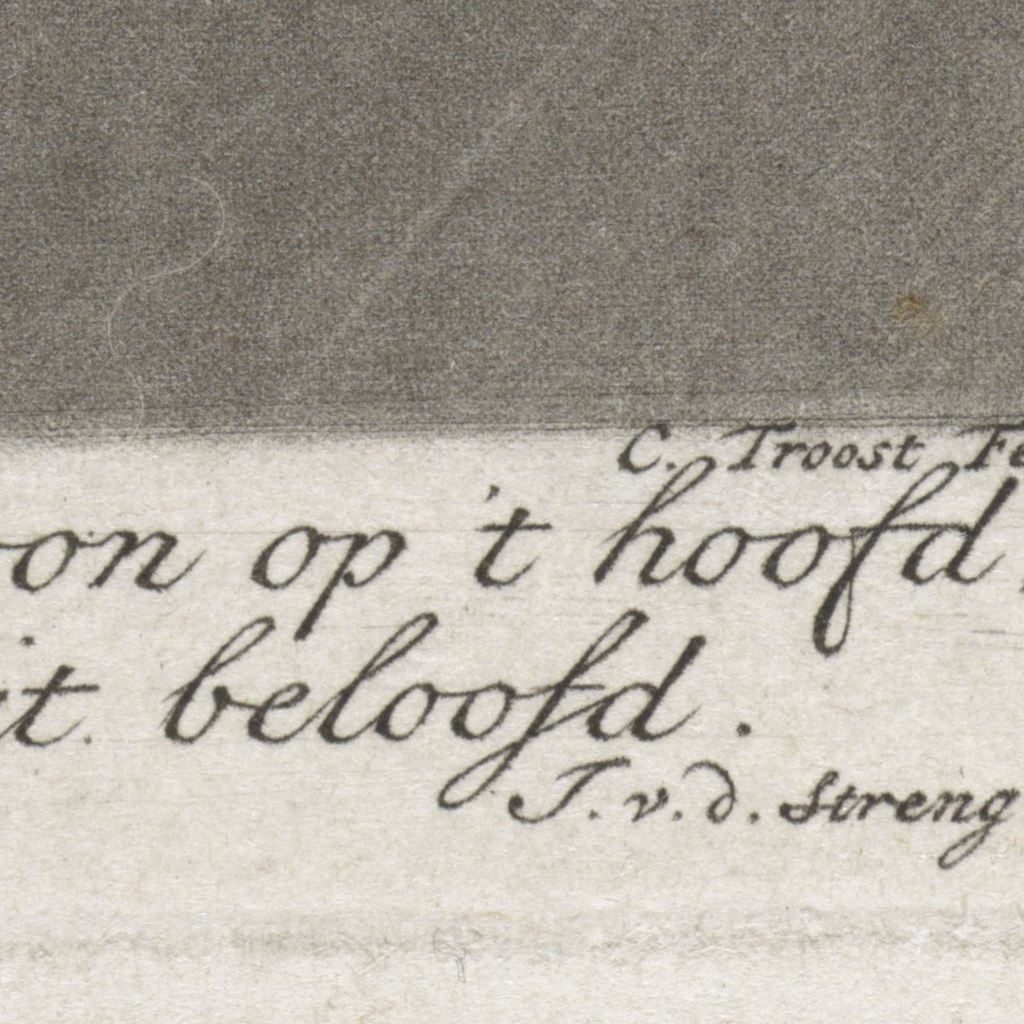 C. Troost Fe
on op 't hoofd
it beloofd.
J. v. d. Streng